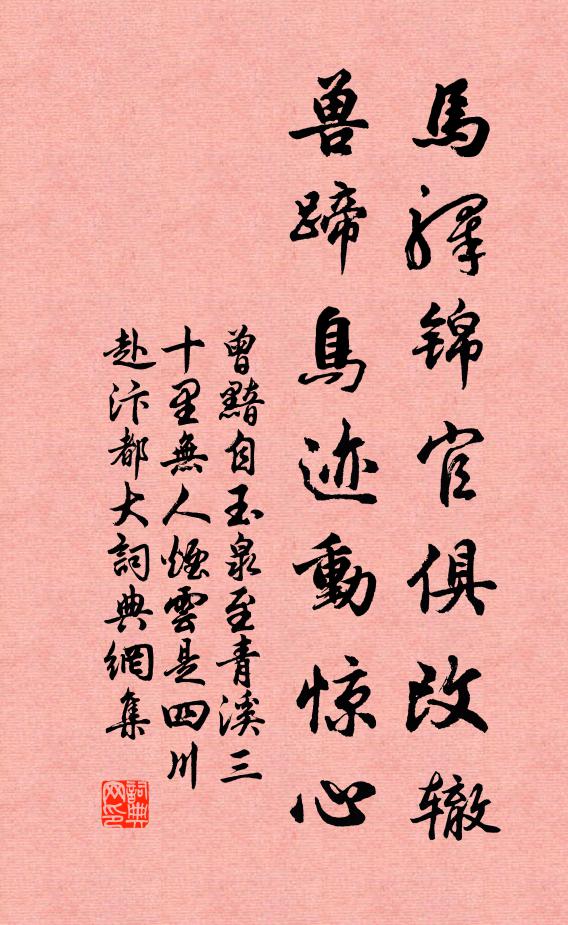 馬驛锦官俱改辙
兽蹄鳥迹動惊心
曾黯自玉泉至青溪三
十里無人煙雲是四川
赴汴都大詞典網集
詞典網印